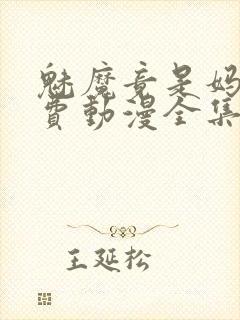 魅魔竟是妈
费動漫全集
王延松